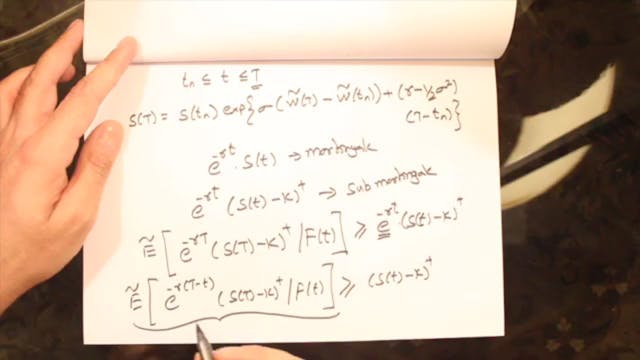 tₙ ≤ t ≤ T
S(T) = S(tₙ) exp{σ(W̃(T) − W̃(tₙ)) + (r−½σ²)
(T−tₙ)}
e^{-rt} · S(t) → martingale
e^{-rt} (S(t)−K)⁺ → submartingale
Ẽ[e^{-rT} (S(T)−K)⁺ / F(t)] ⩾ e^{-rt} · (S(t)−K)⁺
Ẽ[e^{-r(T-t)} (S(T)−K)⁺ / F(t)] ⩾ (S(t)−K)⁺